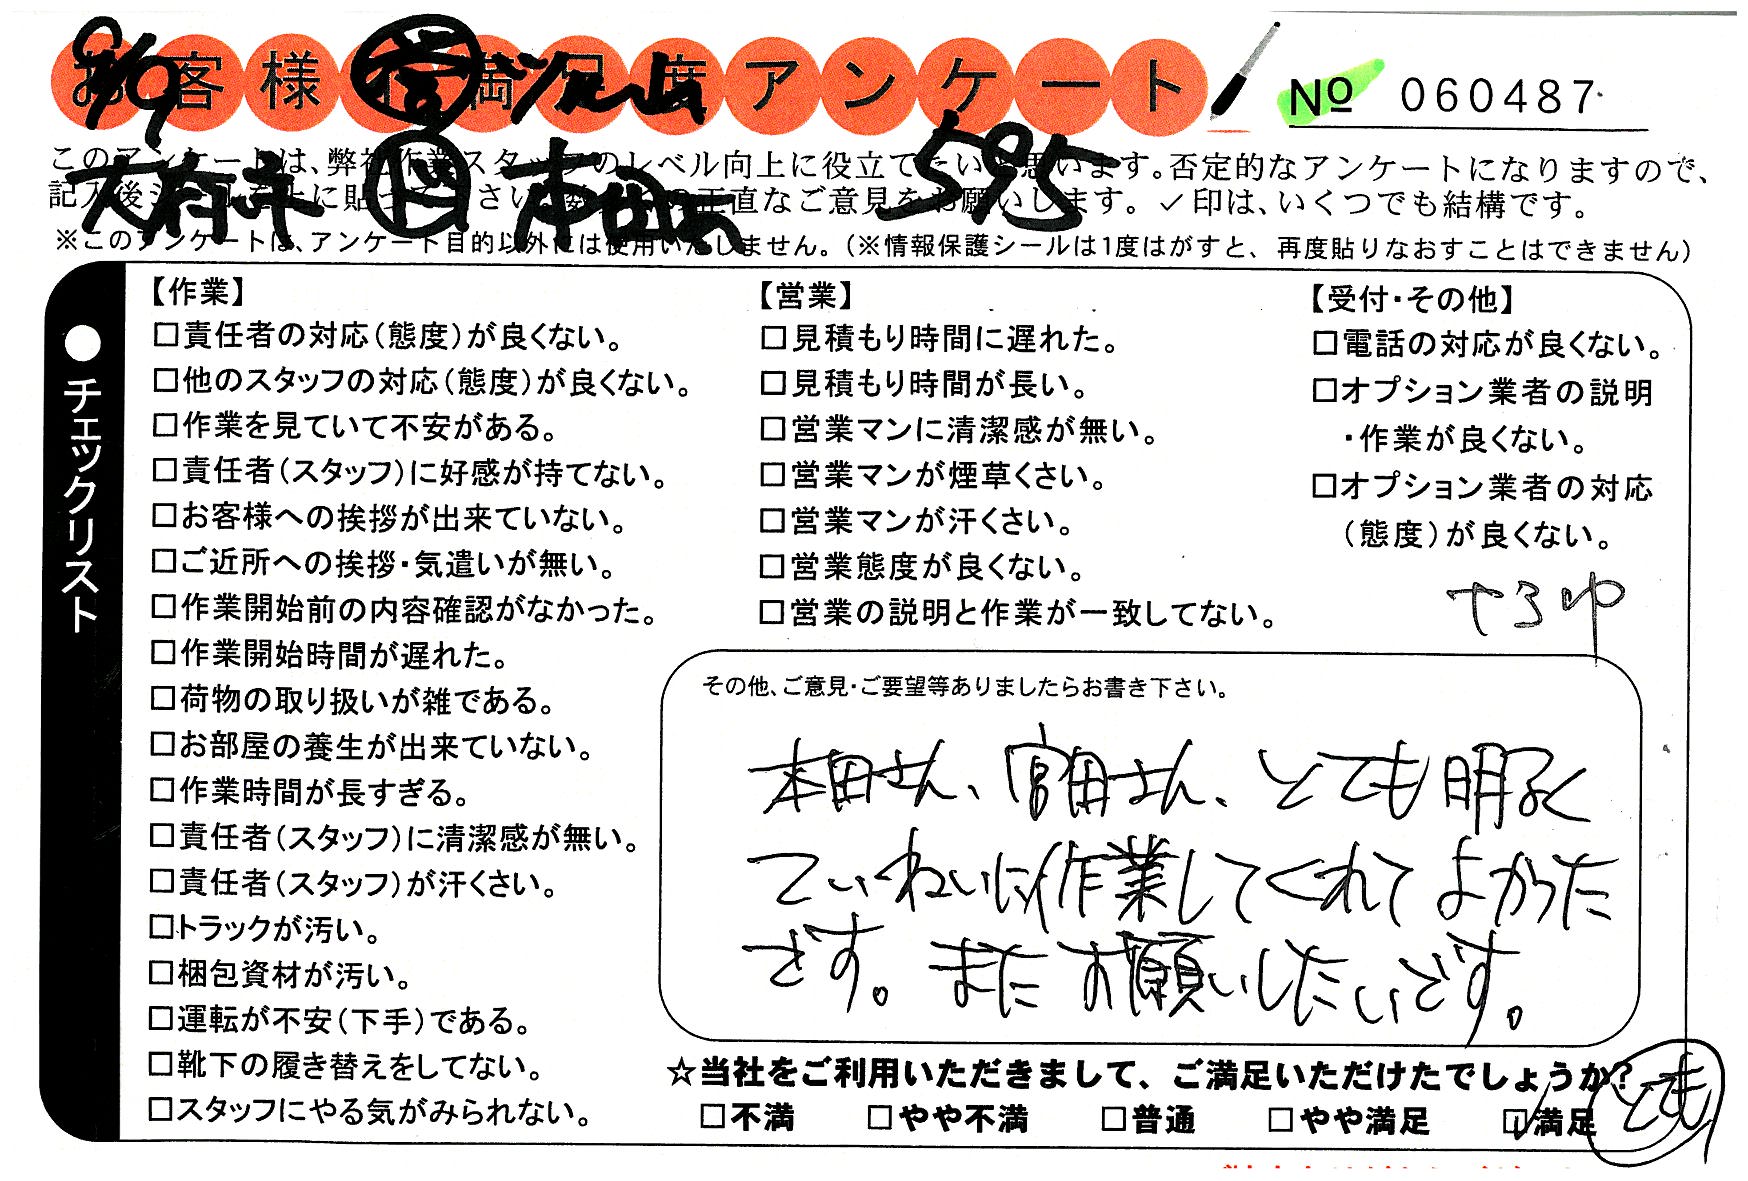 お客様不満足度アンケート
№ 060487
9/9 営
大府市 595
このアンケートは、弊社作業スタッフのレベル向上に役立てたいと思います。否定的なアンケートになりますので、
記入後シールを上に貼って下さい。 の正直なご意見をお願いします。✓印は、いくつでも結構です。
※このアンケートは、アンケート目的以外には使用いたしません。(※情報保護シールは1度はがすと、再度貼りなおすことはできません)
●チェックリスト
【作業】
□責任者の対応(態度)が良くない。
□他のスタッフの対応(態度)が良くない。
□作業を見ていて不安がある。
□責任者(スタッフ)に好感が持てない。
□お客様への挨拶が出来ていない。
□ご近所への挨拶・気遣いが無い。
□作業開始前の内容確認がなかった。
□作業開始時間が遅れた。
□荷物の取り扱いが雑である。
□お部屋の養生が出来ていない。
□作業時間が長すぎる。
□責任者(スタッフ)に清潔感が無い。
□責任者(スタッフ)が汗くさい。
□トラックが汚い。
□梱包資材が汚い。
□運転が不安(下手)である。
□靴下の履き替えをしてない。
□スタッフにやる気がみられない。
【営業】
□見積もり時間に遅れた。
□見積もり時間が長い。
□営業マンに清潔感が無い。
□営業マンが煙草くさい。
□営業マンが汗くさい。
□営業態度が良くない。
□営業の説明と作業が一致してない。
【受付・その他】
□電話の対応が良くない。
□オプション業者の説明
・作業が良くない。
□オプション業者の対応
(態度)が良くない。
その他、ご意見・ご要望等ありましたらお書き下さい。
本田さん、宮田さん、とても明るく
ていねいに作業してくれてよかった
です。またお願いしたいです。
☆当社をご利用いただきまして、ご満足いただけたでしょうか?
□不満 □やや不満 □普通 □やや満足 ☑満足 とても